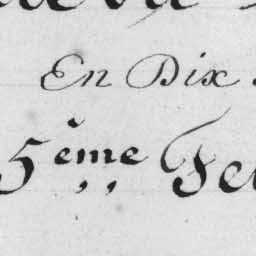 En Dix
5ème Fe